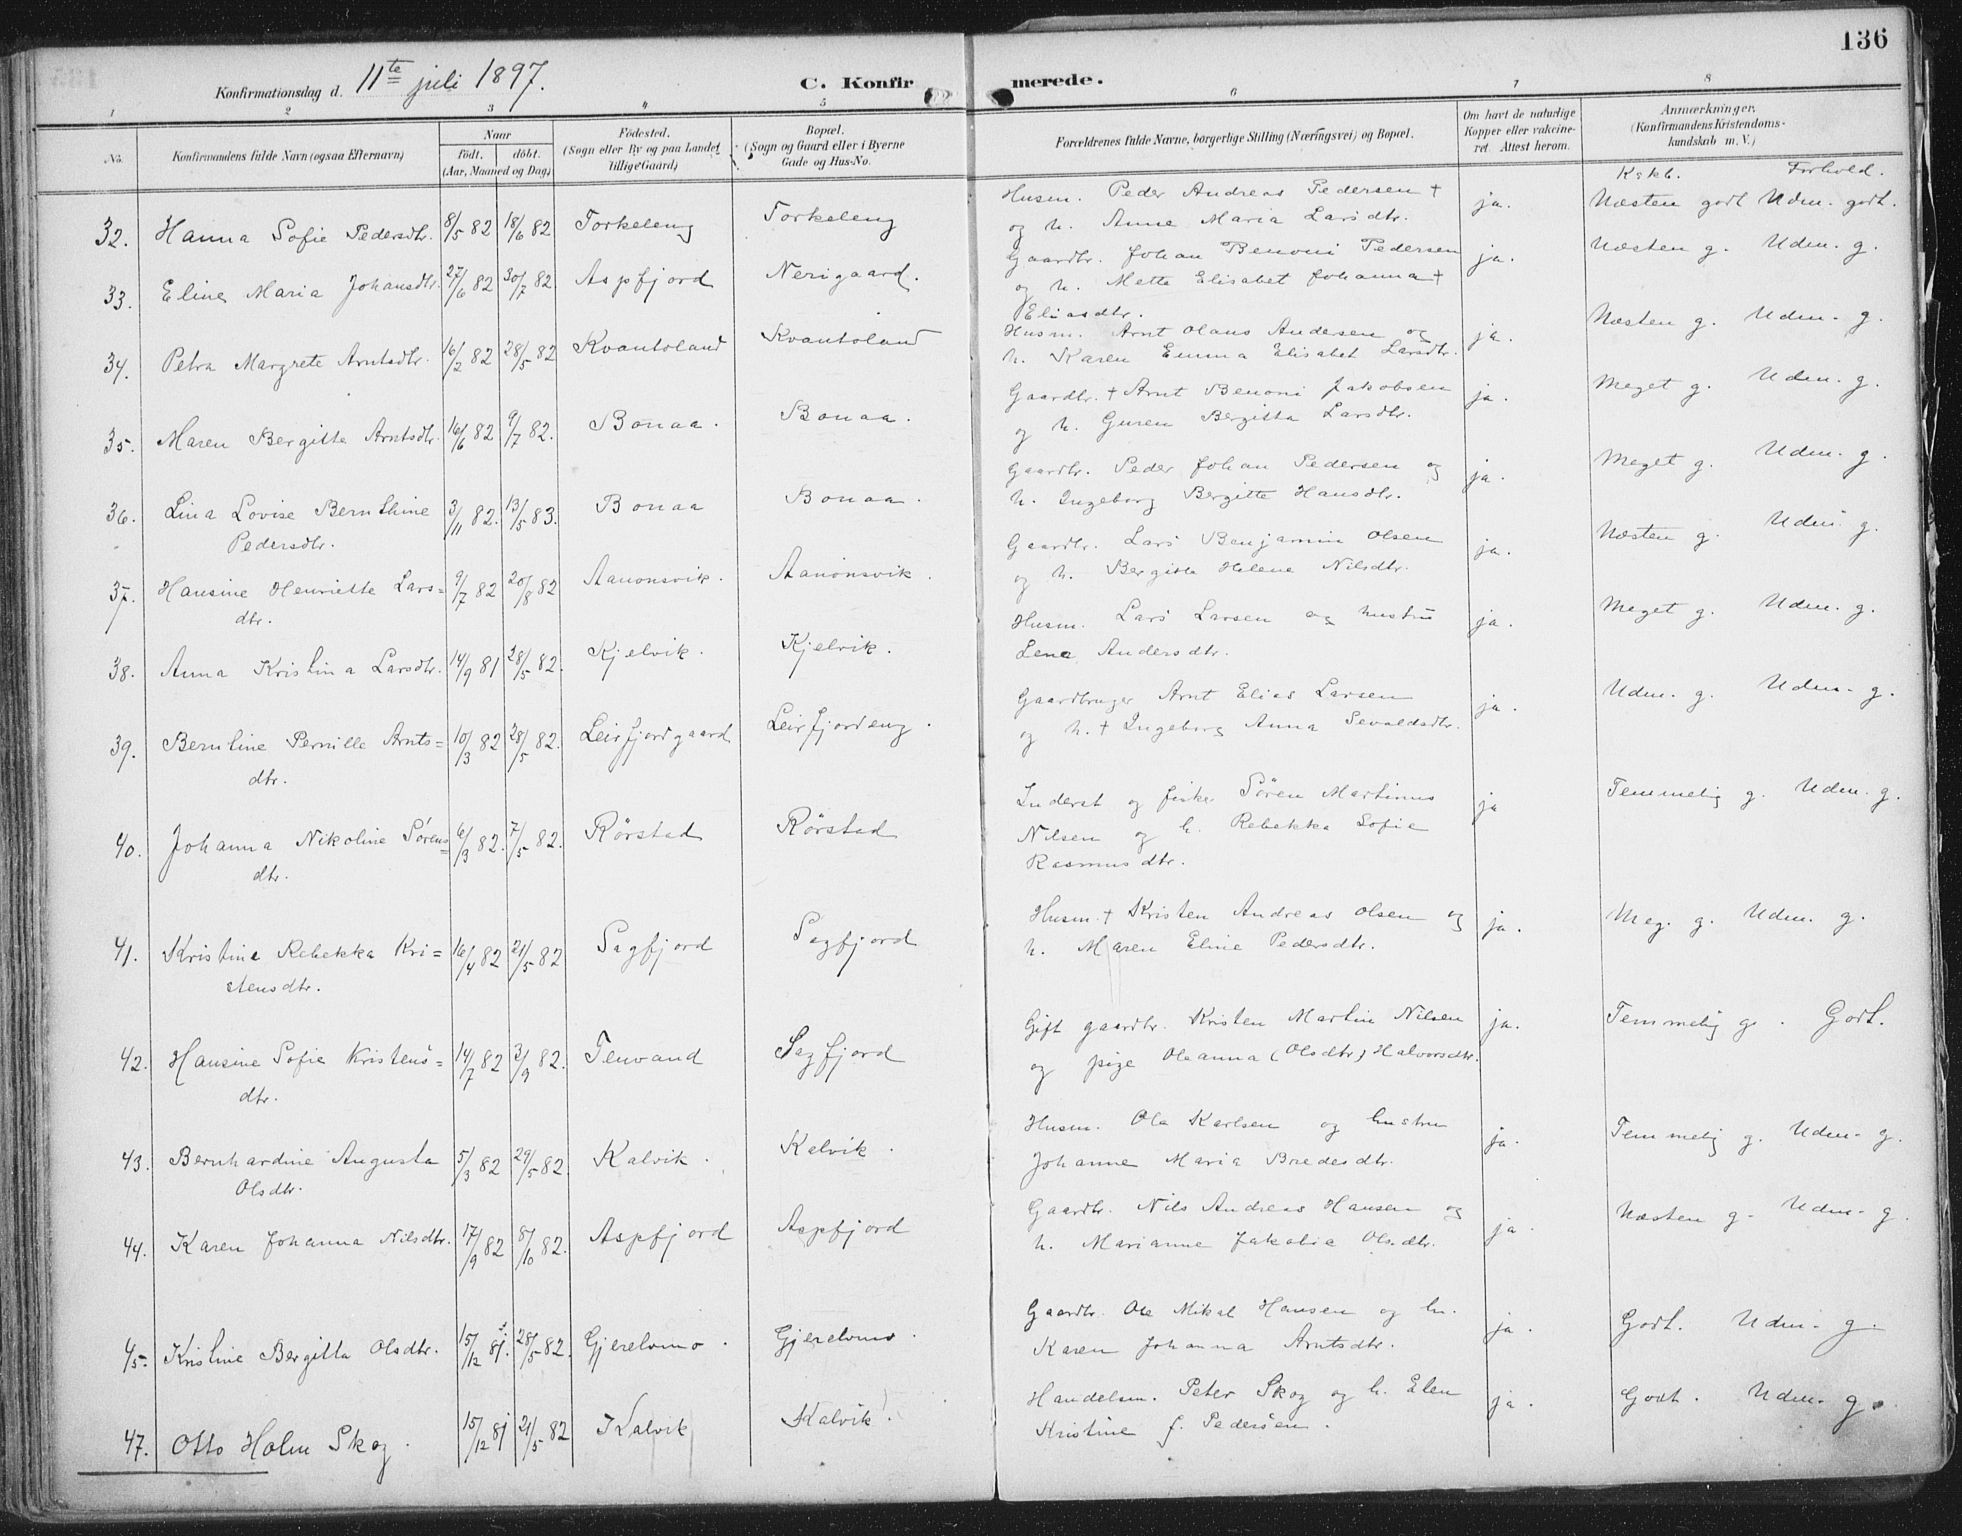 136
Konfirmationsdag d. 11te juli 1897. C. Konfir merede.
1 2 3 4 5 6 7 8
No. Konfirmandens fulde Navn (ogsaa Efternavn) Naar født. døbt. (Aar, Maaned og Dag) Fødested. (Sogn eller By og paa Landet tillige Gaard) Bopæl. (Sogn og Gaard eller i Byerne Gade og Hus-No. Forældrenes fulde Navne, borgerlige Stilling (Næringsvei) og Bopæl. Om havt de naturlige Kopper eller vakcineret. Attest herom. Anmærkninger. (Konfirmandens Kristendomskundskab m. V.)
Kskb. Forhold.
32. Hanna Sofie Pedersdtr. 8/5 82 18/6 82 Torkeleng Torkeleng Husm. Peder Andreas Pedersen + ja. Næsten godt Udm. godt.
og h. Anne Maria Larsdtr.
33. Eline Maria Johansdtr. 27/6 82 30/7 82. Aspfjord Nerigaard. Gaardbr. Johan Benoni Pedersen ja. Næsten g. Udm. g.
og h. Mette Elisabet Johanna +
Eliasdtr.
34. Petra Margrete Arntsdtr. 16/2 82 28/5 82 Kvantoland Kvantoland Husm. Arnt Olaus Andersen og ja. Næsten g. Udm. g.
h. Karen Emma Elisabet Larsdtr.
35. Maren Bergitte Arntsdtr. 16/6 82 9/7 82. Bonaa. Bonaa. Gaardbr. + Arnt Benoni Jakobsen ja. Meget g. Udm. g.
og h. Guren Bergitta Larsdtr.
36. Lina Lovise Bernthine 3/11 82. 13/5 83. Bonaa Bonaa. Gaardbr. Peder Johan Pedersen og ja. Meget g. Udm. g.
Pedersdtr. h. Ingeborg Bergitte Hansdtr.
37. Hansine Henriette Lars= 9/7 82 20/8 82 Aanonsvik. Aanonsvik. Gaardbr. Lars Benjamin Olsen ja. Næsten g. Udm. g.
dtr. og h. Bergitta Helene Nilsdtr.
38. Anna Kristina Larsdtr. 14/9 81 28/5 82. Kjelvik. Kjelvik. Husm. Lars Larsen og hustru ja. Meget g. Udm. g.
Lena Andersdtr.
39. Berntine Pernille Arnts= 10/3 82 28/5 82. Leirfjordgaard Leirfjordeng. Gaardbruger Arnt Elias Larsen ja. Udm. g. Udm. g.
dtr. og h. + Ingeborg Anna Sevaldsdtr.
40. Johanna Nikoline Sørens= 6/3 82. 7/5 82. Rørstad Rørstad Inderst og fisker Søren Martinus ja Temmelig g. Udm. g.
dtr. Nilsen og h. Rebekka Sofie
Rasmusdtr.
41. Kristine Rebekka Kri= 16/4 82 21/5 82 Sagfjord Sagfjord Husm. + Kristen Andreas Olsen og ja. Meg. g. Udm. g.
stensdtr. h. Maren Eline Pedersdtr.
42. Hansine Sofie Kristens= 14/7 82 3/9 82. Tenvand Sagfjord Gift gaardbr. Kristen Martin Nilsen ja. Temmelig g. Godt.
dtr. og pige Oleanna (Olsdtr) Halvorsdtr.
43. Bernhardine Augusta 5/3 82 29/5 82 Kalvik. Kalvik. Husm. Ola Karlsen og hustru ja. Temmelig g. Udm. g.
Olsdtr. Johanne Maria Bredesdtr.
44. Karen Johanna Nilsdtr. 17/9 82 8/10 82. Aspfjord Aspfjord Gaardbr. Nils Andreas Hansen og ja. Næsten g. Udm. g.
h. Marianne Jakobie Olsdtr.
45. Kristine Bergitta Olsdtr. 15/12 81. 28/5 82. Gjerelvmo. Gjerelvmo. Gaardbr. Ole Mikal Hansen og h. ja. Godt. Udm. g.
Karen Johanna Arntsdtr.
47. Otto Holm Skog. 15/12 81 21/5 82 Kalvik Kalvik. Handelsm. Peter Skog og h. Elen ja. Godt. Udm. g.
Kristine f. Pedersen.